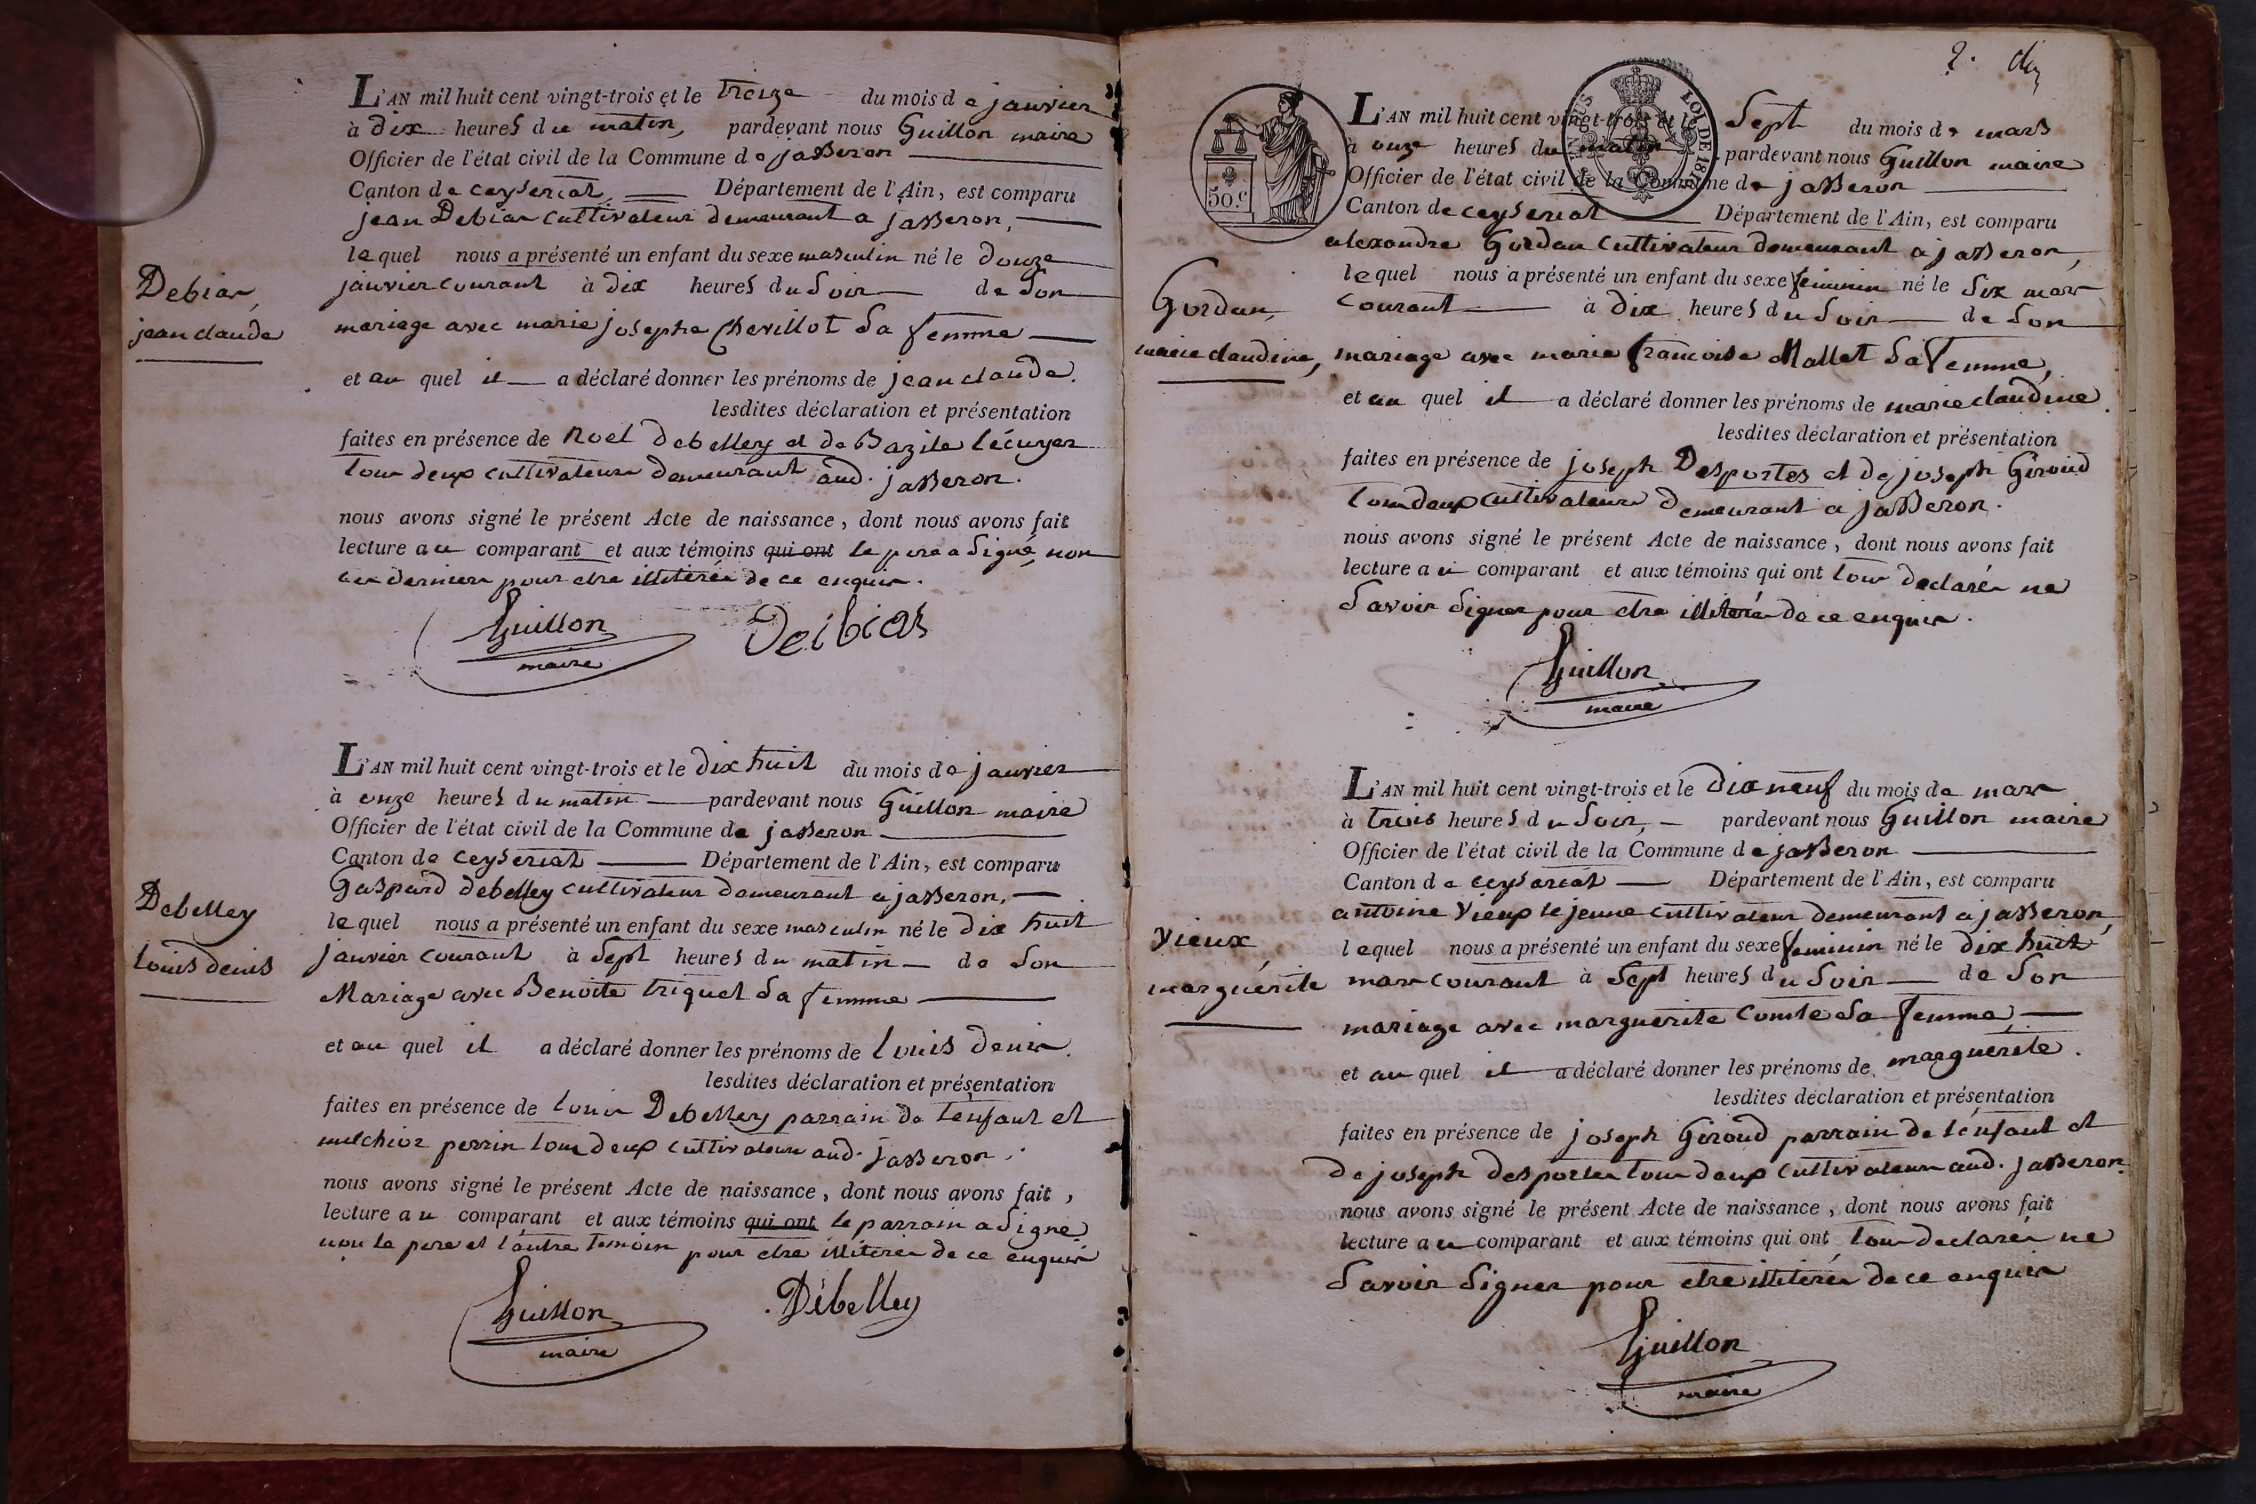 L'AN mil huit cent vingt-trois et le treize du mois de janvier
à dix heures du matin, pardevant nous Guillon maire
Officier de l'état civil de la Commune de jasseron
Canton de ceyseriat Département de l'Ain, est comparu
jean Debias cultivateur demeurant a jasseron,
lequel nous a présenté un enfant du sexe masculin né le douze
Debias,
janvier courant à dix heures du Soir de Son
jean claude
mariage avec marie josephe Chevillot Sa femme
et au quel il a déclaré donner les prénoms de jean claude.
lesdites déclaration et présentation
faites en présence de Noel Debelley et de Bazile lécuyer
tous deux cultivateurs demeurant aud. jasseron.
nous avons signé le présent Acte de naissance, dont nous avons fait
lecture au comparant et aux témoins qui ont le pere a Signé, non
ces derniers pour etre illiterés de ce enquis.
Guillon
maire
Deibias
L'AN mil huit cent vingt-trois et le dix huit du mois de janvier
à onze heures du matin pardevant nous Guillon maire
Officier de l'état civil de la Commune de jasseron
Canton de ceyseriat Département de l'Ain, est comparu
Gaspard debelley cultivateur demeurant a jasseron,
Debelley
lequel nous a présenté un enfant du sexe masculin né le dix huit
louis denis
janvier courant à Sept heures du matin de Son
Mariage avec Benoite triquet Sa femme
et au quel il a déclaré donner les prénoms de louis denis.
lesdites déclaration et présentation
faites en présence de louis Debelley parrain de l'enfant et
melchior perrin tous deux cultivateurs aud. jasseron.
nous avons signé le présent Acte de naissance, dont nous avons fait,
lecture au comparant et aux témoins qui ont le parrain a Signé
non le pere et l'autre temoin pour etre illiterés de ce enquis
Guillon
maire
Débelley
2.
50.c
LOI DE 181
L'AN mil huit cent vingt-trois et le Sept du mois de mars
à onze heures du matin pardevant nous Guillon maire
Officier de l'état civil de la Commune de jasseron
Canton de ceyseriat Département de l'Ain, est comparu
alexandre Gordan cultivateur demeurant a jasseron,
lequel nous a présenté un enfant du sexe feminin né le Six mars
Gordan,
courant à dix heures du Soir de Son
marie claudine,
mariage avec marie francoise Mallet Sa femme,
et au quel il a déclaré donner les prénoms de marie claudine.
lesdites déclaration et présentation
faites en présence de joseph Desportes et de joseph Giroud
tous deux cultivateurs demeurant a jasseron.
nous avons signé le présent Acte de naissance, dont nous avons fait
lecture au comparant et aux témoins qui ont tous declarés ne
Savoir Signer pour etre illiterés de ce enquis.
Guillon
maire
L'AN mil huit cent vingt-trois et le dix neuf du mois de mars
à trois heures du Soir, pardevant nous Guillon maire
Officier de l'état civil de la Commune de jasseron
Canton de ceyseriat Département de l'Ain, est comparu
antoine Vieux le jeune cultivateur demeurant a jasseron,
Vieux,
lequel nous a présenté un enfant du sexe feminin né le dix huit
marguérite
mars courant à Sept heures du Soir de Son
mariage avec marguerite Comte Sa femme,
et au quel il a déclaré donner les prénoms de marguerite.
lesdites déclaration et présentation
faites en présence de joseph Giroud parrain de l'enfant et
de joseph desportes tous deux cultivateurs aud. jasseron.
nous avons signé le présent Acte de naissance, dont nous avons fait
lecture au comparant et aux témoins qui ont tous declarés ne
Savoir Signer pour etre illiterés de ce enquis
Guillon
maire